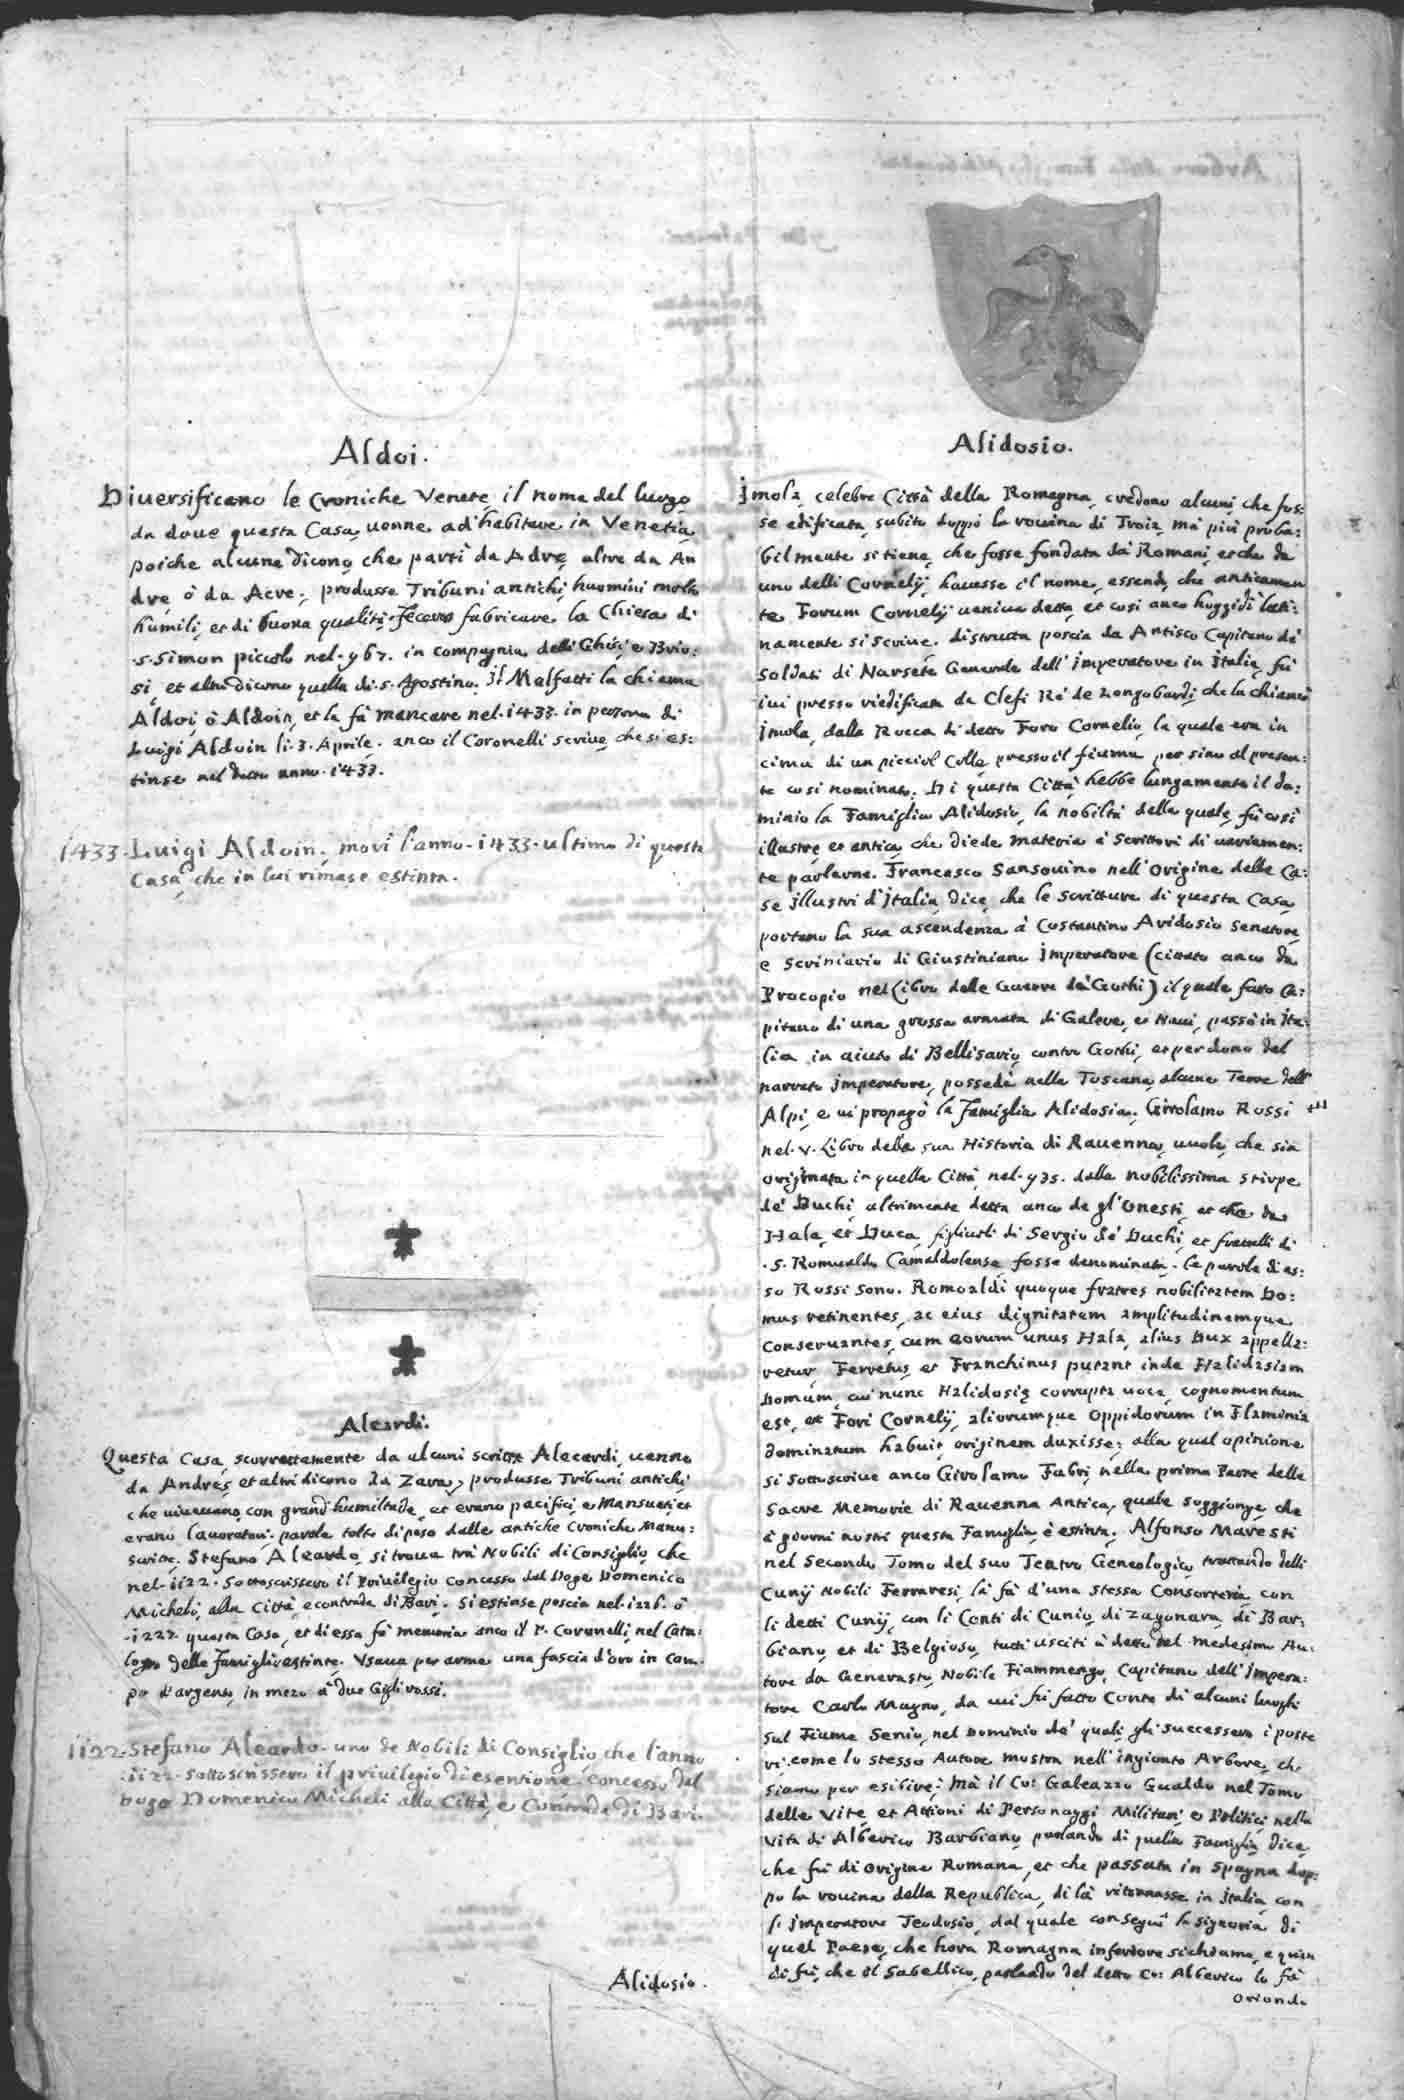 Aldoi.
Diuersificano le Croniche Venete il nome del luogo
da doue questa Casa uenne ad habitare in Venetia
poiche alcune dicono che partì da Adre, altre da An
dre ò da Acre, produsse Tribuni antichi huomini molto
humili, et di buona qualità. Fecero fabricare la Chiesa di
S. Simon piccolo nel 967. in compagnia delli Ghisi, e Brio:
si, et altri dicono quella di S. Agostino. Il Malfatti la chiama
Aldoi, ò Aldoin, et la fà mancare nel 1433. in persona di
Luigi Aldoin li 3. Aprile. anco il Coronelli scriue, che si es:
tinse nel detto anno 1433.
1433. Luigi Aldoin, morì l'anno 1433. ultimo di questa
Casa che in lui rimase estinta.
Aleardi.
Questa Casa scorrettamente da alcuni scritta Alecardi, uenne
da Andres et altri dicono da Zara, produsse Tribuni antichi,
che uiueuano con grand'humiltade, et erano pacifici, e Mansueti, et
erano lauoratori. parole tolte di peso dalle antiche Croniche Manu:
scritte. Stefano Aleardo, si troua trà Nobili di Consiglio che
nel 1122. Sottoscrissero il Priuilegio concesso dal Doge Domenico
Micheli, alla Città, e contrada di Bari. Si estinse poscia nel 1226. ò
1227. questa Casa, et di essa fà memoria anco il P. Coronelli, nel Cata:
logo delle famiglie estinte. Vsaua per arme una fascia d'oro in cam:
po d'argento, in mezo à due Gigli rossi.
1122. Stefano Aleardo. uno de Nobili di Consiglio, che l'anno
1122. sottoscrissero il priuilegio di esentione, concesso dal
Doge Domenico Micheli alla Città, e Contrada di Bari.
Alidosio.
Alidosio.
Imola, celebre Città della Romagna, credono alcuni che fos:
se edificata subito doppò la rouina di Troia, mà più proba:
bilmente si tiene, che fosse fondata da Romani, et che da
uno delli Cornelij hauesse il nome, essendo, che anticamen
te, Forum Cornelij ueniua detta, et così anco hoggidì lati:
namente si scriue. distrutta poscia da Antisco Capitano de'
soldati di Narsete Generale dell'Imperatore in Italia, fù
iui presso riedificata da Clefi Rè de Longobardi, che la chiamò
Imola, dalla Rocca di detto Foro Cornelio, la quale era in
cima di un picciol Colle, presso il fiume, per sino al presen:
te così nominato. Di questa Città hebbe lungamente il do:
minio la Famiglia Alidosio, la nobiltà della quale, fù così
illustre, et antica, che diede materia à Scrittori di uariamen:
te parlarne. Francesco Sansouino nell'Origine delle Ca:
se Illustri d'Italia, dice, che le Scritture di questa Casa
portano la sua ascendenza à Costantino Aridosio Senatore,
e Scriniario di Giustiniano Imperatore (citato anco da
Procopio nel libro delle Guerre de' Gothi) il quale fatto Ca:
pitano di una grossa armata di Galere, et Naui, passò in Ita:
lia in aiuto di Bellisario, contro Gothi, et per dono del
narrato Imperatore, possedè nella Toscana, alcune Terre dell'
Alpi, e ui propagò la Famiglia Alidosia. Girolamo Rossi
nel V. Libro della sua Historia di Rauenna, uuole, che sia
originata in quella Città, nel 935. dalla nobilissima stirpe
de' Duchi, altrimente detta anco de gl'Onesti, et che da
Hala, et Duca, figliuoli di Sergio de' Duchi, et fratelli di
S. Romualdo Camaldolense fosse denominata. le parole di es:
so Rossi sono. Romoaldi quoque fratres nobilitatem Do:
mus retinentes, ac eius dignitatem amplitudinemque
conseruantes, cum eorum unus Hala, alius Dux appella:
retur. Ferretus, et Franchinus putant inde Halidasiam
Domum, cui nunc Halidosia corrupta uoce, cognomentum
est, et Fori Cornelij, aliorumque oppidorum in Flaminia
dominatum habuit, originem duxisse; alla qual opinione
si sottoscriue anco Girolamo Fabri, nella prima Parte delle
Sacre Memorie di Rauenna Antica, quale soggionge, che
à giorni nostri questa Famiglia è estinta. Alfonso Maresti
nel Secondo Tomo del suo Teatro Geneologico, trattando delli
Cunij Nobili Ferraresi, la fà d'una stessa Consorteria con
li detti Cunij, con li Conti di Cunio, di Zagonara, di Bar:
biano, et di Belgioso, tutti usciti à detto del medesimo Au:
tore da Generasto, Nobile Fiammengo, Capitano dell'Impera:
tore Carlo Magno, da cui fù fatto Conte di alcuni luoghi
sul Fiume Senio, nel Dominio de' quali, gli successero i poste
ri, come lo stesso Autore mostra nell'ingionto Arbore, che
siamo per esibire; Mà il Co: Galeazzo Gualdo nel Tomo
delle Vite, et Attioni di Personaggi Militari, e Politici, nella
Vita di Alberico Barbiano, parlando di quella Famiglia, dice,
che fù di origine Romana, et che passata in Spagna dop:
po la rouina della Republica, di là ritornasse in Italia con
l'Imperatore Teodosio, dal quale conseguì la Signoria di
quel Paese, che hora Romagna inferiore si chiama, e quin
di fù, che il Sabellico, parlando del detto Co: Alberico lo fà
Oriondo